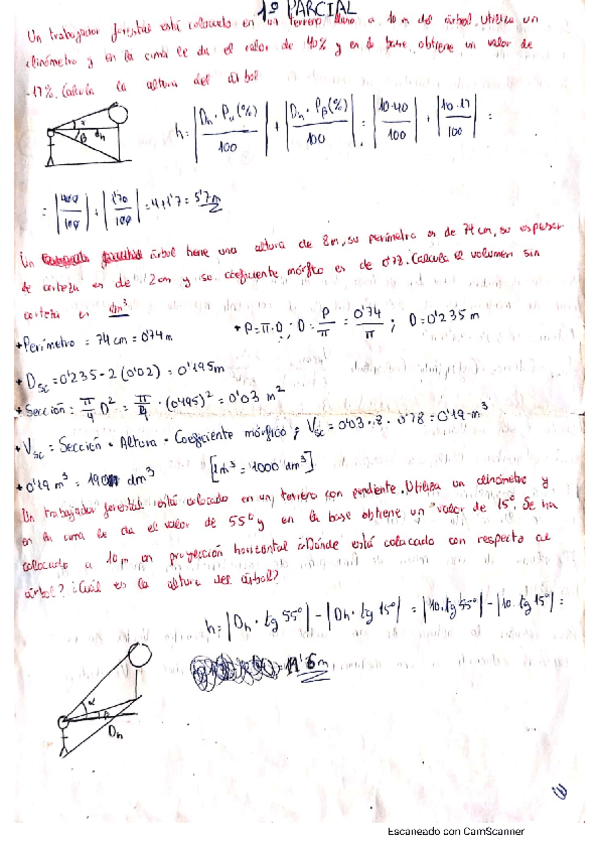 1º PARCIAL
Un trabajador forestal está colocado en un terreno llano a 10 m del árbol. Utiliza un
clinómetro y en la cima le da el valor de 40% y en la base obtiene un valor de
-17%. Calcula la altura del árbol
h = |Dh · Pα(%) / 100| + |Dh · Pβ(%) / 100| = |10·40 / 100| + |10·17 / 100| =
α
β dh
= |400 / 100| + |170 / 100| = 4+1'7 = 5'7 m
Un árbol tiene una altura de 8m, su perímetro es de 74 cm, su espesor
de corteza es de 2cm y su coeficiente mórfico es de 0'78. Calcula el volumen sin
corteza en dm³
+ Perímetro = 74 cm = 0'74 m + P = π · D ; D = P/π = 0'74/π ; D = 0'235 m
+ Dsc = 0'235 - 2 (0'02) = 0'195m
+ Sección: π/4 D² = π/4 · (0'195)² = 0'03 m²
+ Vsc = Sección · Altura · Coeficiente mórfico ; Vsc = 0'03 · 8 · 0'78 = 0'19 m³
+ 0'19 m³ = 190 dm³ [1m³ = 1000 dm³]
Un trabajador forestal está colocado en un terreno con pendiente. Utiliza un clinómetro y
en la cima le da el valor de 55º y en la base obtiene un valor de 15º. Se ha
colocado a 10 m en proyección horizontal ¿Dónde está colocado con respecto al
árbol? ¿Cuál es la altura del árbol?
h = |Dh · tg 55º| - |Dh · tg 15º| = |10 · tg 55º| - |10 · tg 15º| =
= 11'6 m
α
β
Dh
Escaneado con CamScanner